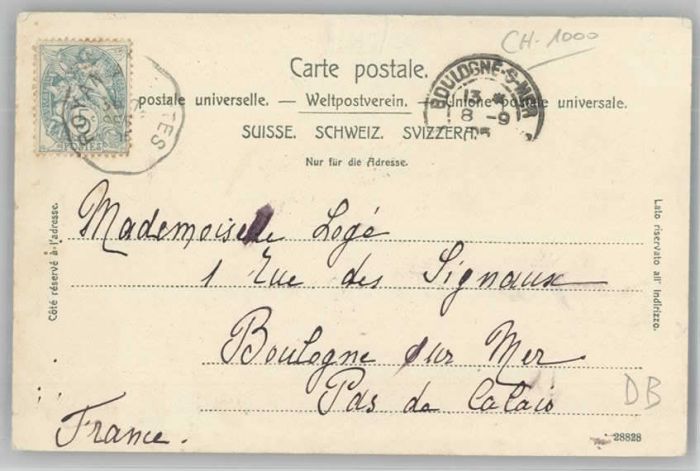 CH-1000
Carte postale.
postale universelle. — Weltpostverein. — Unione postale universale.
SUISSE. SCHWEIZ. SVIZZERA.
Nur für die Adresse.
BOULOGNE-S-MER
13 *
8 - 9
POSTES
Côté réservé à l'adresse.
Lato riservato all' indirizzo.
Mademoiselle Logé
1 Rue des Signaux
Boulogne sur Mer
Pas de Calais
France.
DB
28828